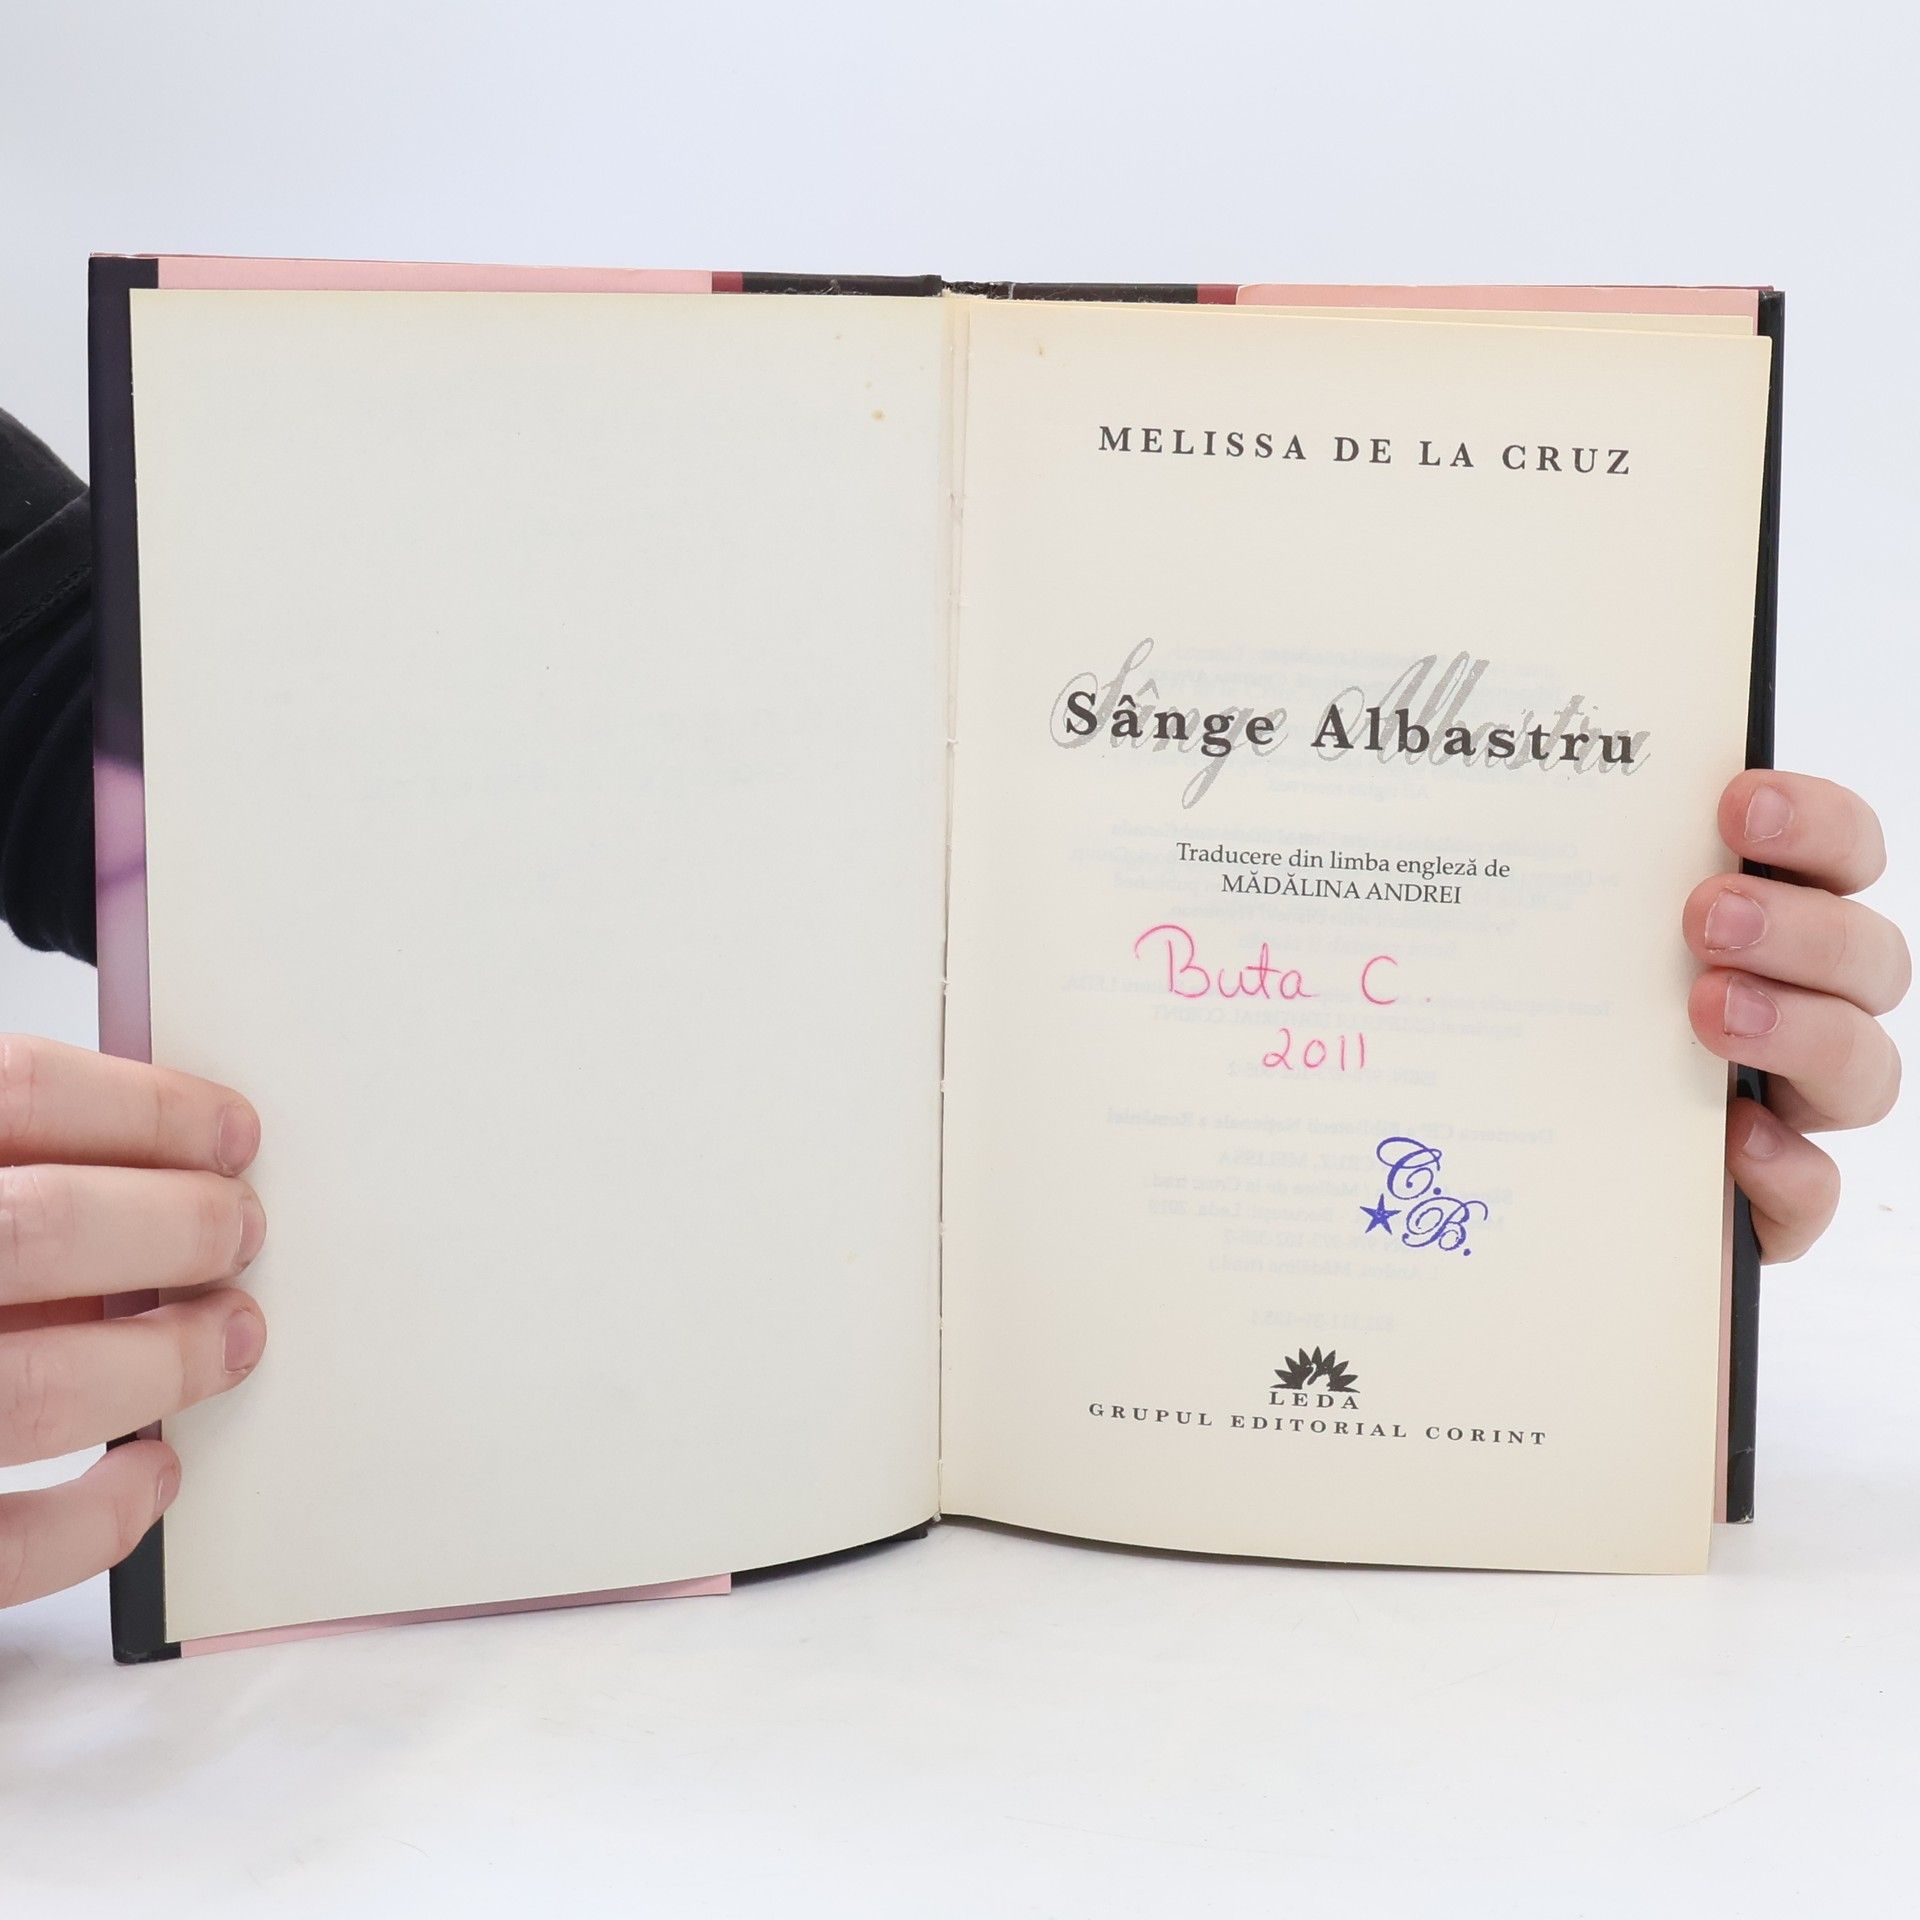 MELISSA DE LA CRUZ
Sânge Albastru
Sânge Albastru
Traducere din limba engleză de
MĂDĂLINA ANDREI
Buta C.
2011
C.
B.
LEDA
GRUPUL EDITORIAL CORINT